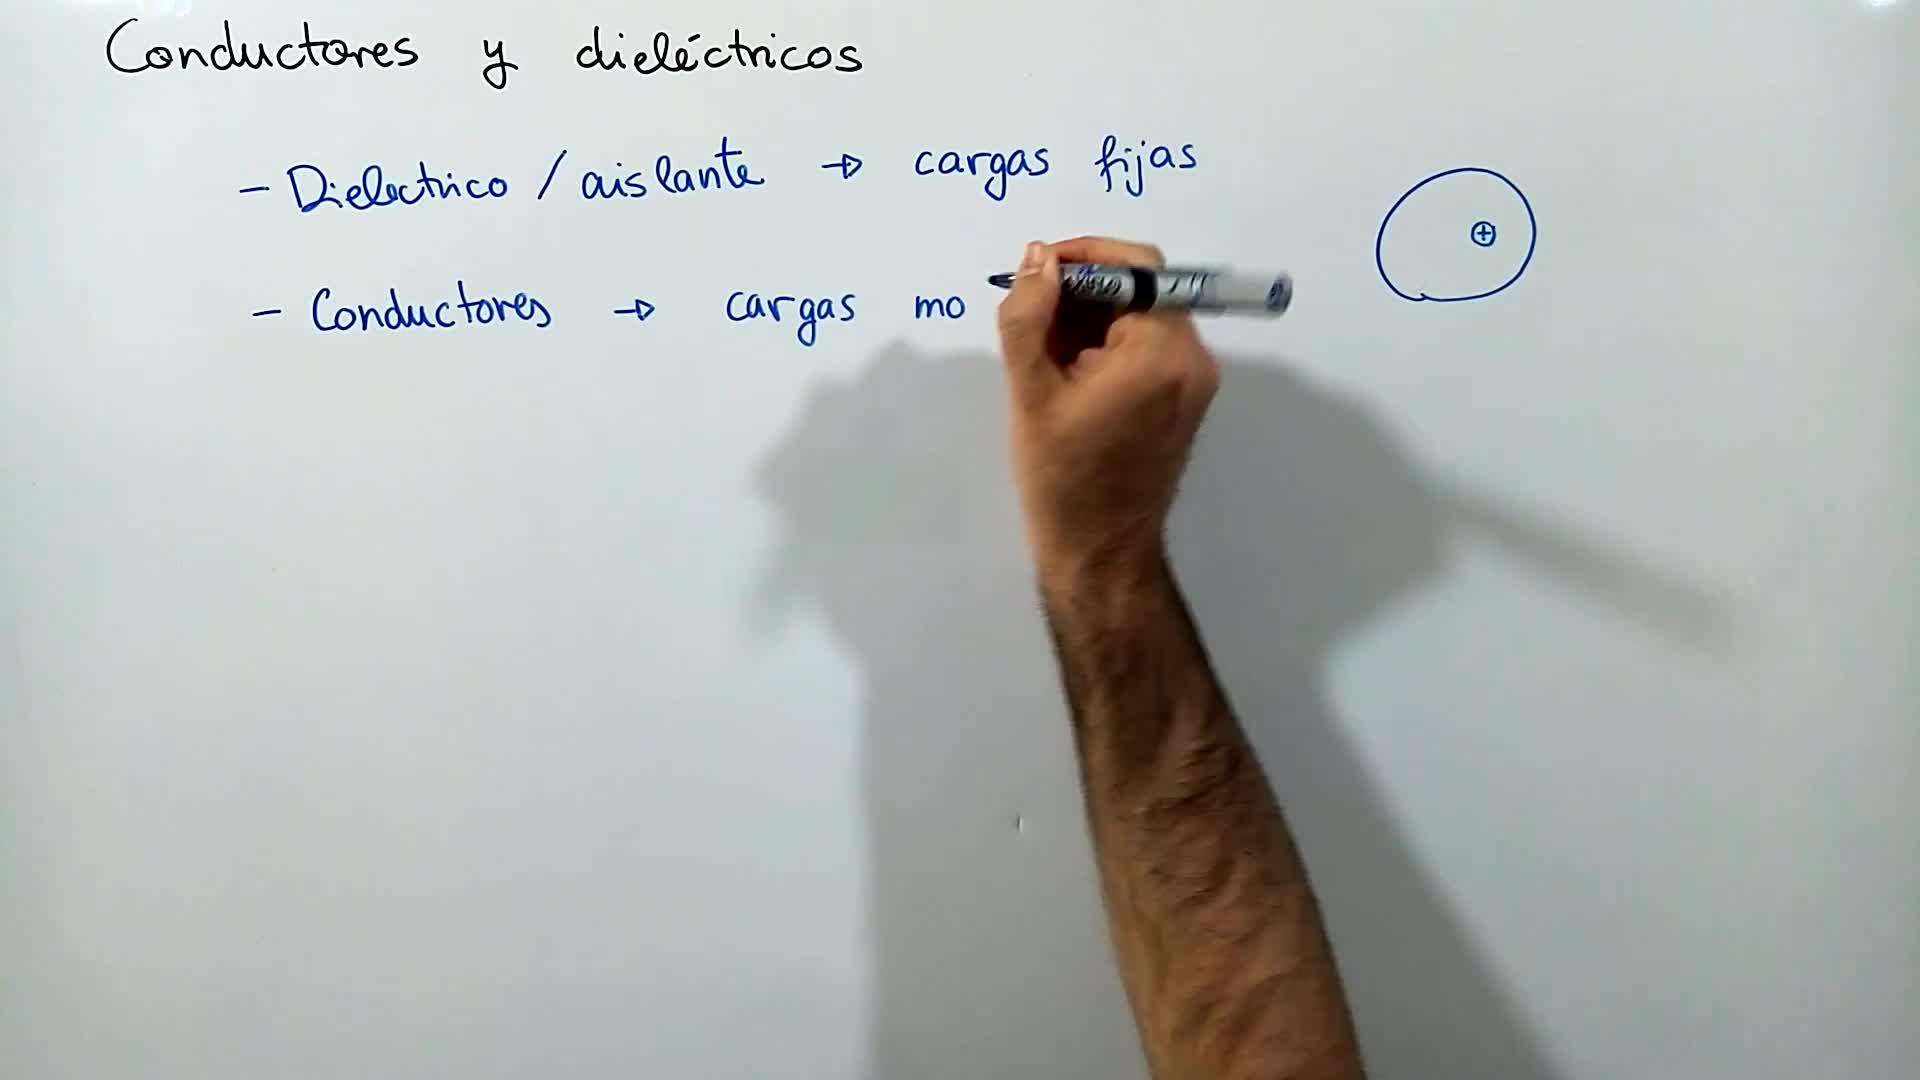 Conductores y dieléctricos
- Dielectrico / aislante → cargas fijas
- Conductores → cargas mo
+